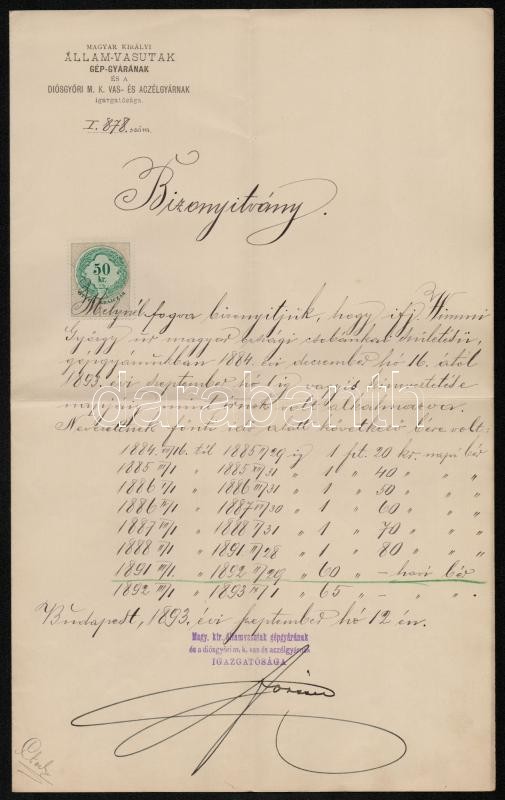 MAGYAR KIRÁLYI
ÁLLAM-VASUTAK
GÉP-GYÁRÁNAK
ÉS A
DIÓSGYŐRI M. K. VAS- ÉS ACZÉLGYÁRNAK
igazgatósága.
I. 878. szám.
Bizonyitvány.
50
kr.
Melynél fogva bizonyitjuk, hogy ifj. Wimmi
György ur magyar országi születésü,
gépgyárunkban 1884. évi december hó 16. ától
1893. évi september hó ig vagyis
alkalmazva.
Nevezettnek fönti idő alatt következő bére volt:
1884 16. tól 1885 29 ig 1 frt. 20 kr. napi bér
1885 1 " 1885 31 " 1 " 40 " " "
1886 1 " 1886 31 " 1 " 50 " " "
1886 1 " 1887 30 " 1 " 60 " " "
1887 1 " 1888 31 " 1 " 70 " " "
1888 1 " 1891 28 " 1 " 80 " " "
1891 1. " 1892 29 " 60 " – havi bér
1892 1 " 1893 1 " 65 " – " "
Budapest, 1893. évi szeptember hó 12 én.
Magy. kir. államvasutak gépgyárának
és a diósgyőri m. k. vas és aczélgyárnak
IGAZGATÓSÁGA
darabanth